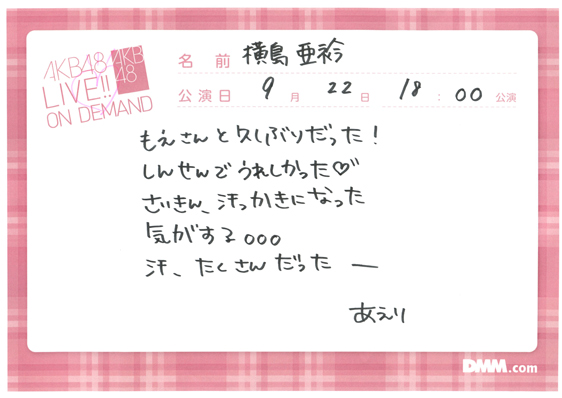 AKB48
LIVE!!
ON DEMAND
AKB
48
名前 横島亜衿
公演日 9月 22日 18:00 公演
もえさんと久しぶりだった!
しんせんでうれしかった♡
さいきん、汗っかきになった
気がする。。。
汗、たくさんだったー
あえり
DMM.com